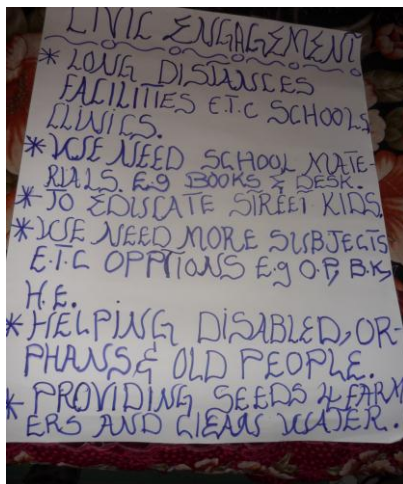 CIVIL ENGAGEMENT
* LONG DISTANCES
FACILITIES E.T.C SCHOOLS,
CLINICS.
* WE NEED SCHOOL MATE-
RIALS. E.g BOOKS & DESK.
* TO EDUCATE STREET KIDS
* WE NEED MORE SUBJECTS
E.T.C OPPTIONS E.g O.P, B.K,
H.E.
* HELPING DISABLED, OR-
PHANS & OLD PEOPLE.
* PROVIDING SEEDS 4 FARM
ERS AND CLEAN WATER.